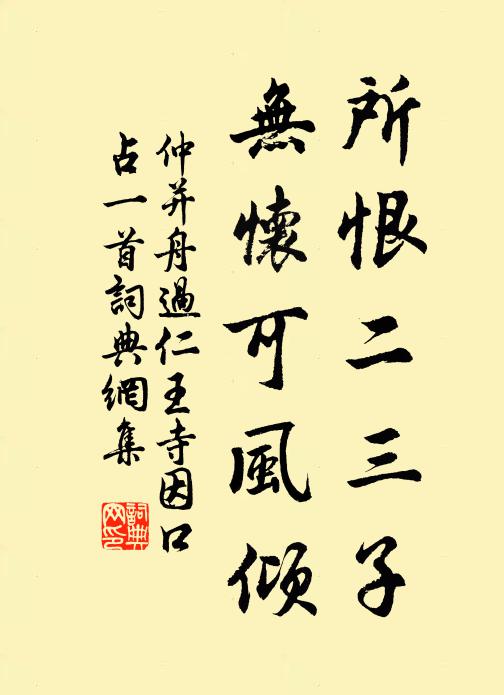 所恨二三子
無懷可風傾
仲并舟過仁王寺因口
占一首詞典網集
詞典
网印